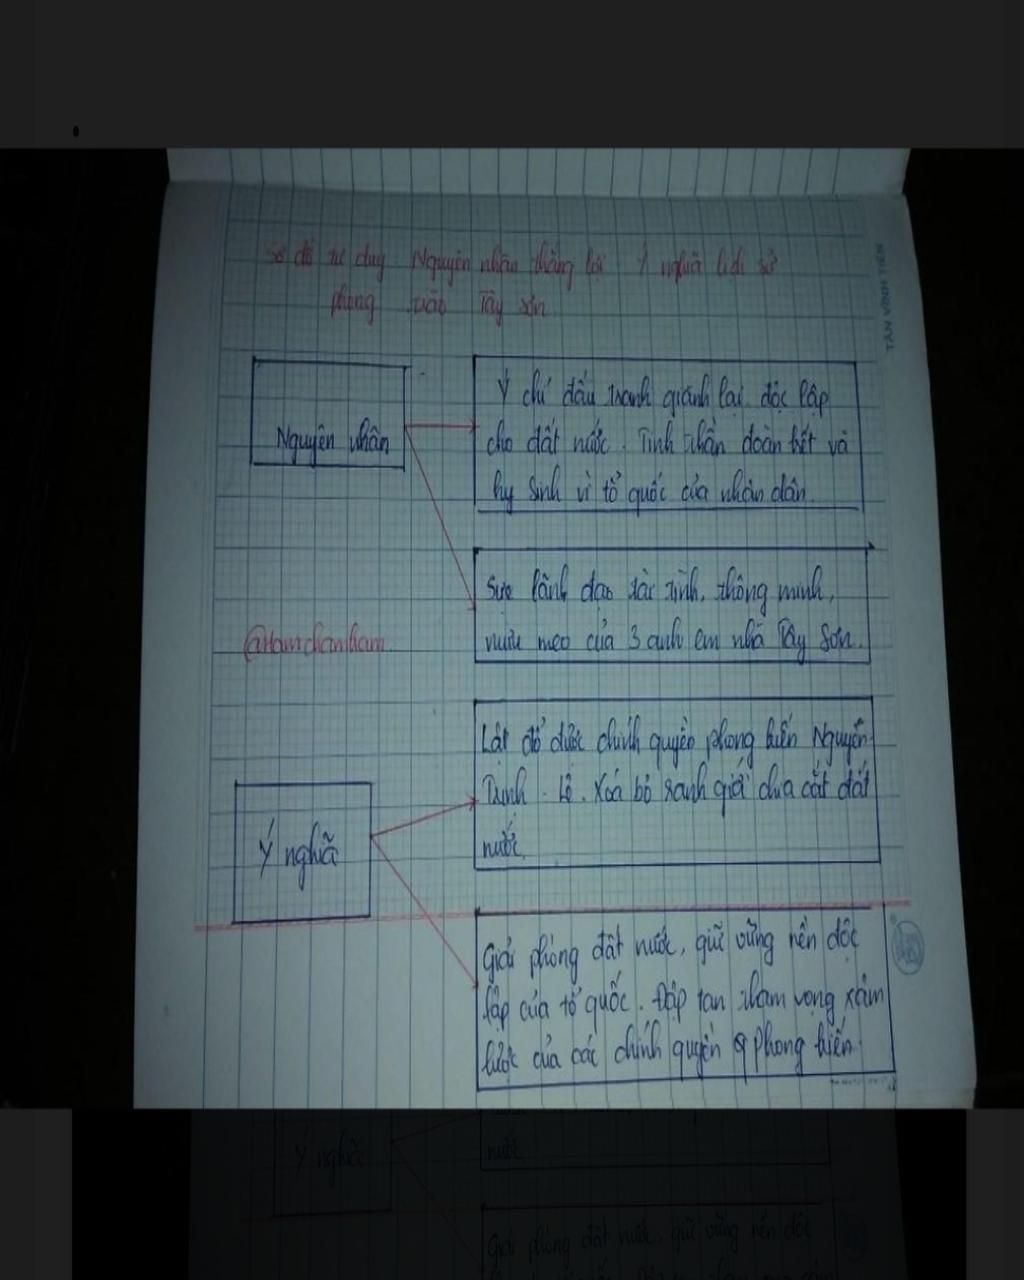 Sơ đồ tư duy Nguyên nhân thắng lợi Ý nghĩa lịch sử
phong trào Tây Sơn
TÂN VĨNH TIẾN
Nguyên nhân
Ý chí đấu tranh giành lại độc lập
cho đất nước. Tinh thần đoàn kết và
hy sinh vì tổ quốc của nhân dân.
Sự lãnh đạo tài tình, thông minh,
mưu mẹo của 3 anh em nhà Tây Sơn.
@Hamchamham.
Ý nghĩa
Lật đổ được chính quyền phong kiến Nguyễn
Trịnh - Lê. Xoá bỏ ranh giới chia cắt đất
nước.
Giải phóng đất nước, giữ vững nền độc
lập của tổ quốc. Đập tan tham vọng xâm
lược của các chính quyền phong kiến.
Ý nghĩa
nước.
Giải phóng đất nước, giữ vững nền độc